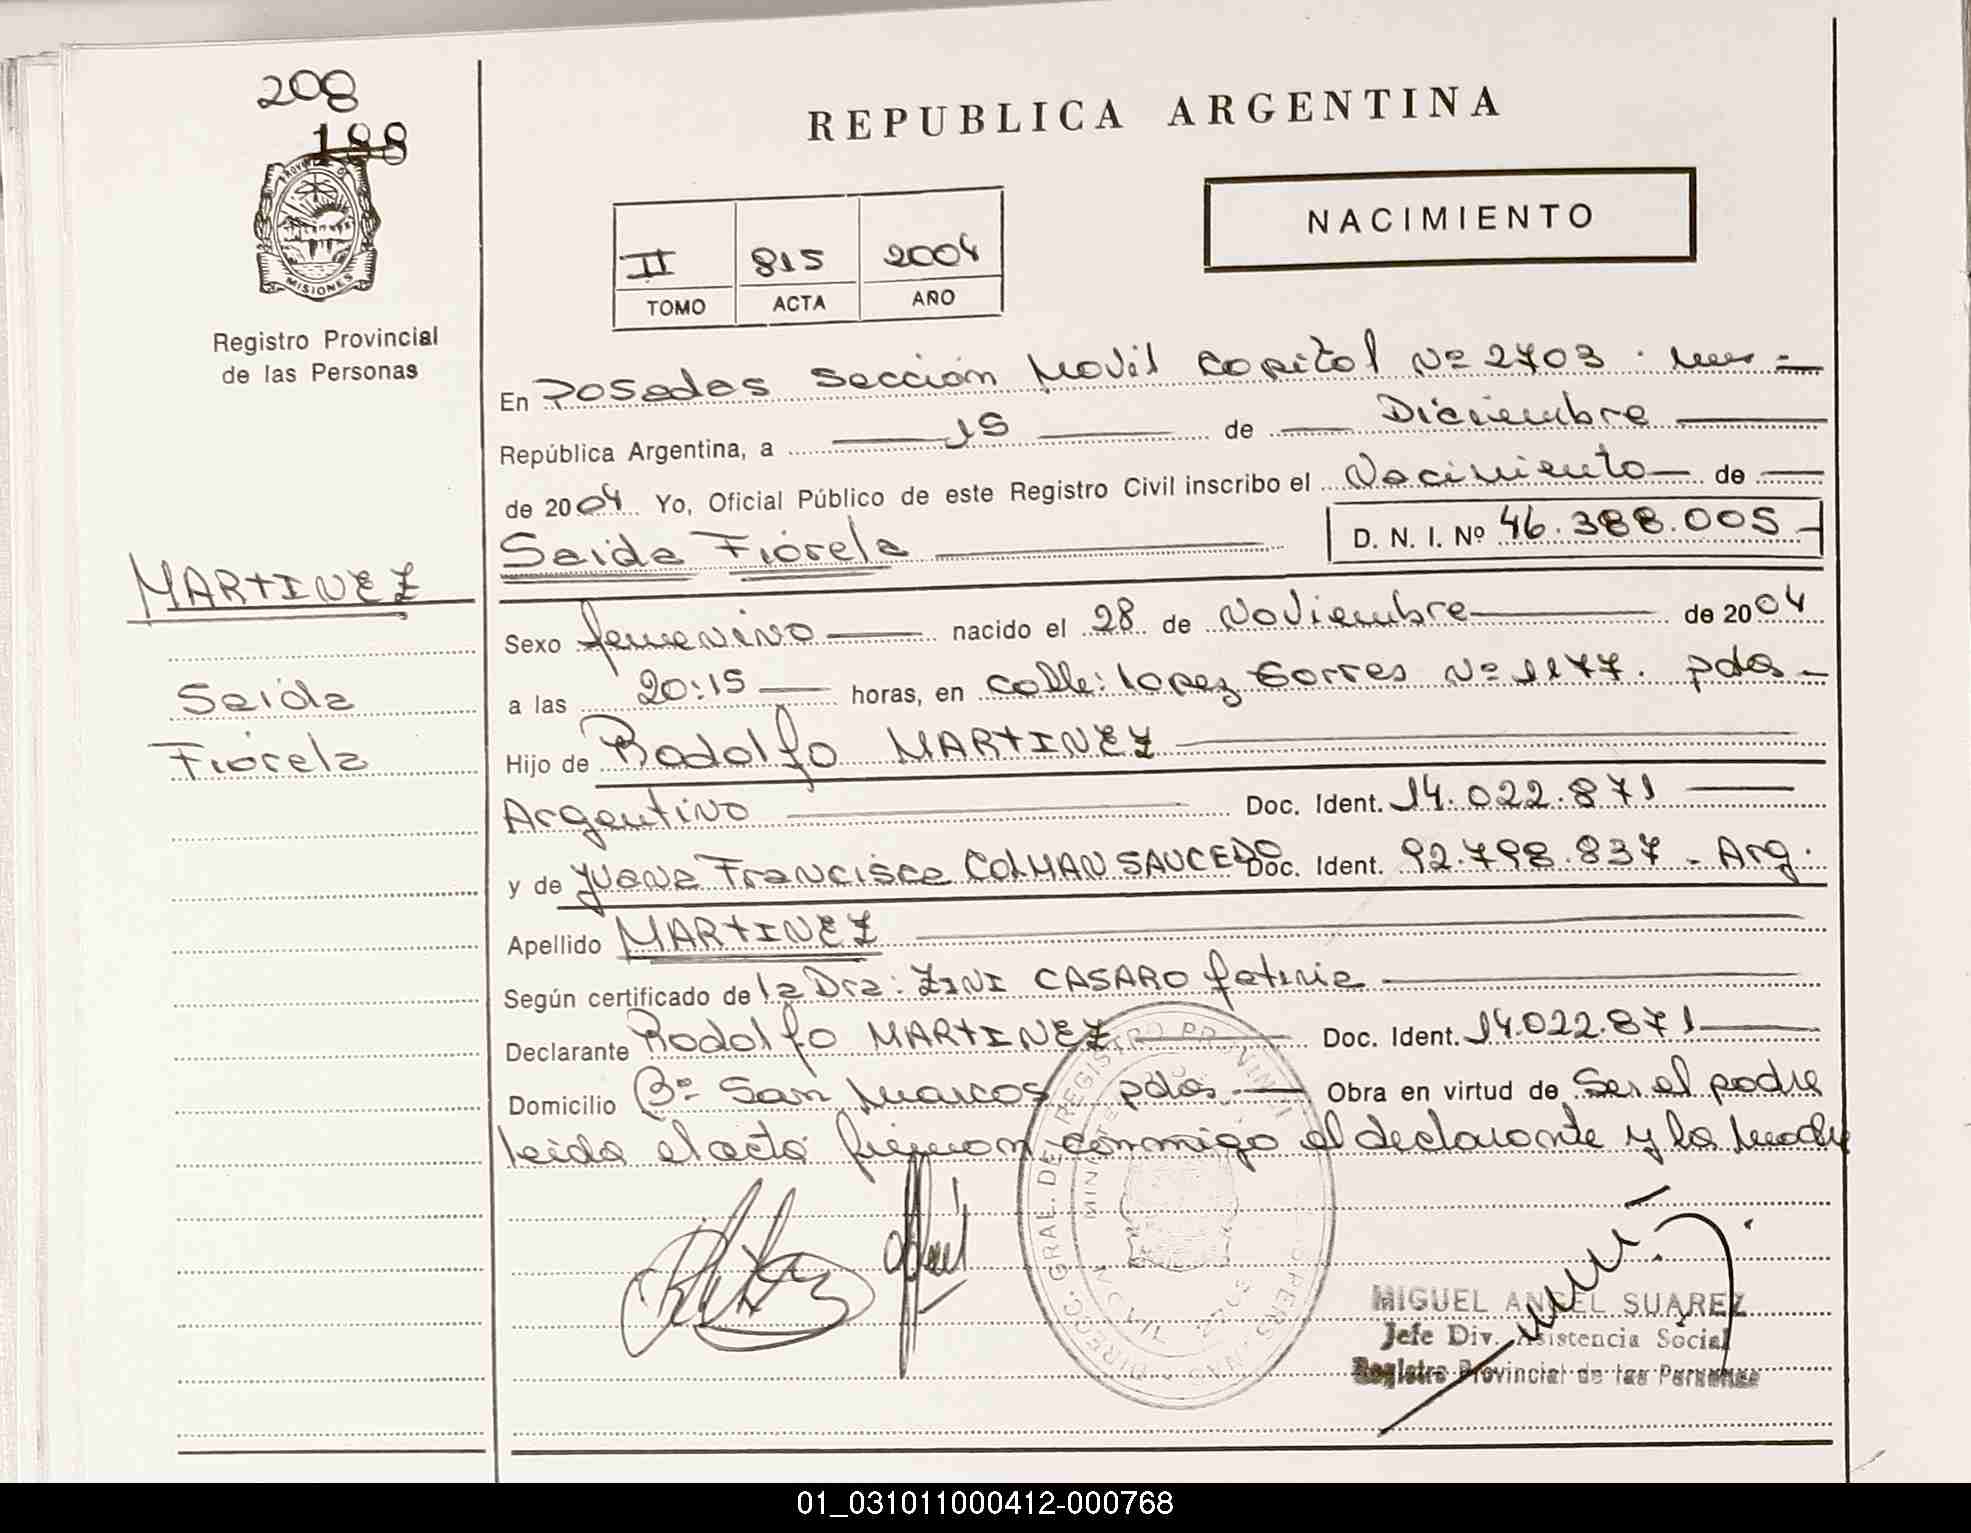 208
188
PROVINCIA DE
MISIONES
Registro Provincial
de las Personas
MARTINEZ
Saida
Fiorela
REPUBLICA ARGENTINA
NACIMIENTO
II 815 2004
TOMO ACTA AÑO
En Posadas Sección Movil Capital Nº 2703 .
República Argentina, a 15 de Diciembre
de 2004 Yo, Oficial Público de este Registro Civil inscribo el Nacimiento de
Saida Fiorela D. N. I. Nº 46.388.005
Sexo femenino nacido el 28 de Noviembre de 2004
a las 20:15 horas, en calle: Lopez Torres Nº 1177. pdas
Hijo de Rodolfo MARTINEZ
Argentino Doc. Ident. 14.022.871
y de Juana Francisca COLMAN SAUCEDO Doc. Ident. 92.798.837 - Arg.
Apellido MARTINEZ
Según certificado de la Dra: ZINI CASARO fatima
Declarante Rodolfo MARTINEZ Doc. Ident. 14.022.871
Domicilio Bº San Marcos pdas Obra en virtud de Ser el padre
leida el acta firman conmigo el declarante y la madre
DIRECC. GRAL. DE REGISTRO PROVINCIAL
MIGUEL ANGEL SUAREZ
Jefe Div. Asistencia Social
Registro Provincial de las Personas
01_031011000412-000768